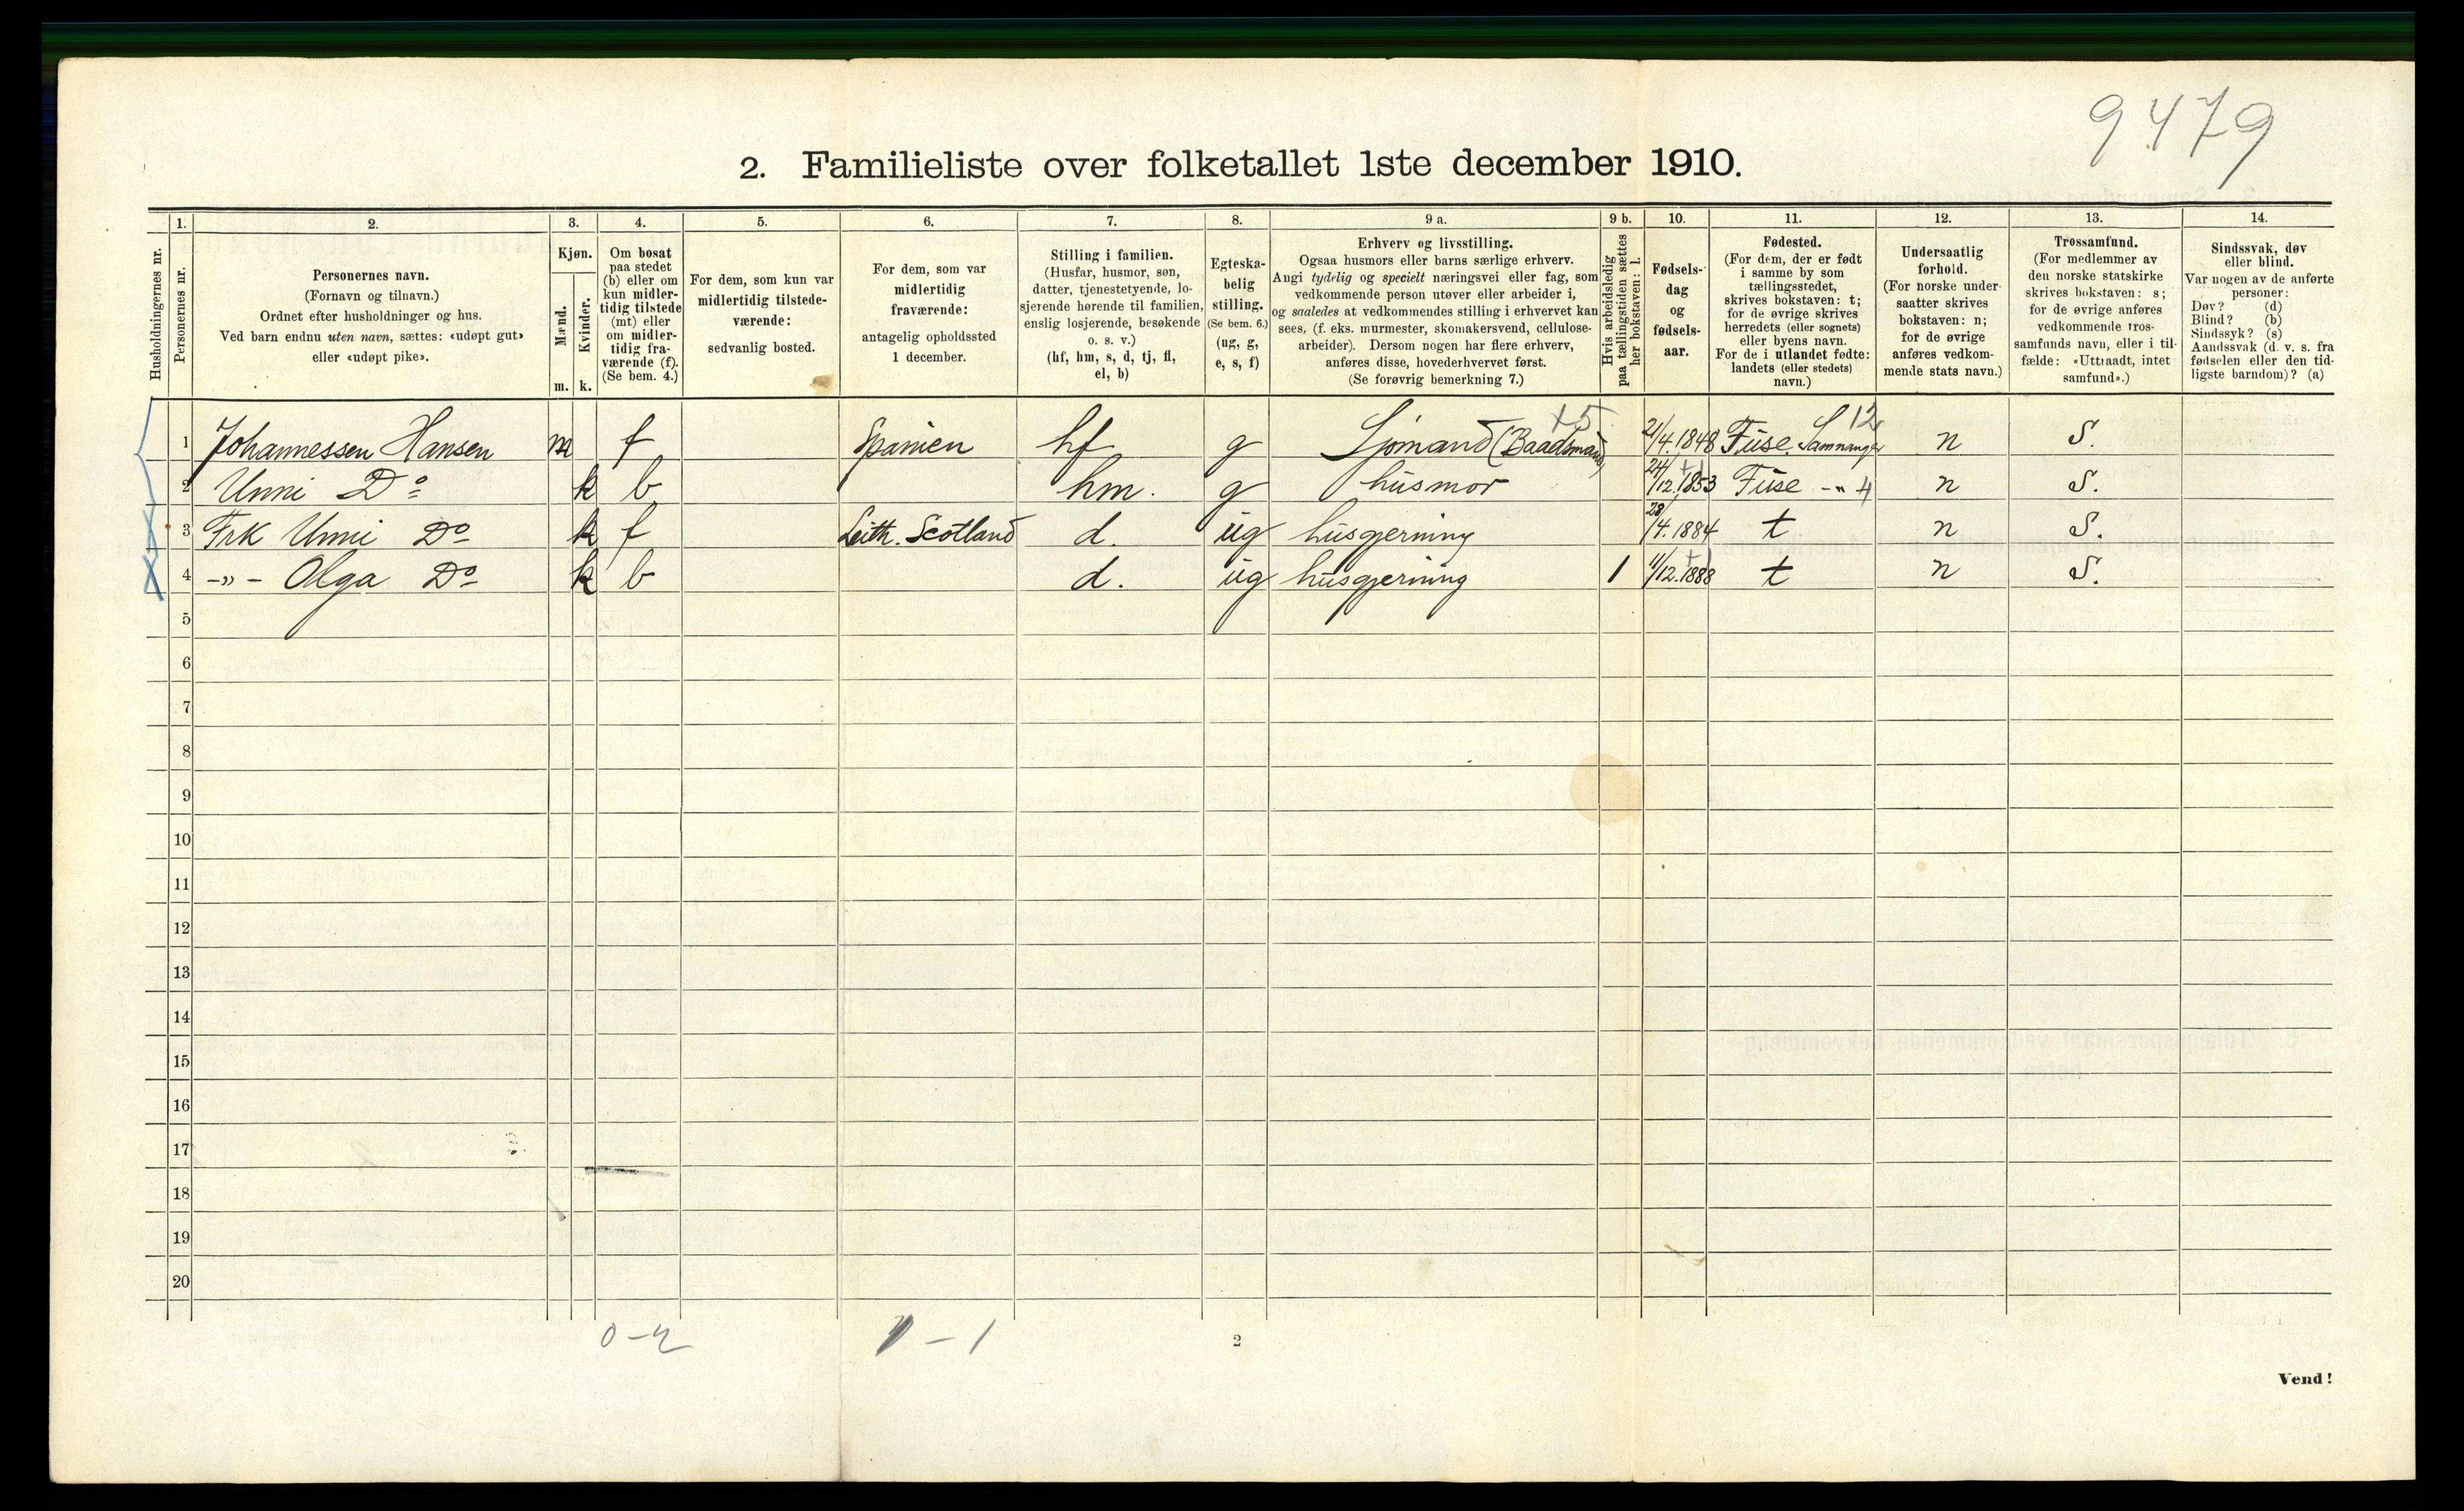 9479
2. Familieliste over folketallet 1ste december 1910.
Husholdningernes nr.
1. Personernes nr.
2. Personernes navn.
(Fornavn og tilnavn.)
Ordnet efter husholdninger og hus.
Ved barn endnu uten navn, sættes: «udøpt gut»
eller «udøpt pike».
3. Kjøn.
Mænd. m.
Kvinder. k.
4. Om bosat
paa stedet
(b) eller om
kun midler-
tidig tilstede
(mt) eller
om midler-
tidig fra-
værende (f).
(Se bem. 4.)
5. For dem, som kun var
midlertidig tilstede-
værende:
sedvanlig bosted.
6. For dem, som var
midlertidig
fraværende:
antagelig opholdssted
1 december.
7. Stilling i familien.
(Husfar, husmor, søn,
datter, tjenestetyende, lo-
sjerende hørende til familien,
enslig losjerende, besøkende
o. s. v.)
(hf, hm, s, d, tj, fl,
el, b)
8. Egteska-
belig
stilling.
(Se bem. 6.)
(ug, g,
e, s, f)
9 a. Erhverv og livsstilling.
Ogsaa husmors eller barns særlige erhverv.
Angi tydelig og specielt næringsvei eller fag, som
vedkommende person utøver eller arbeider i,
og saaledes at vedkommendes stilling i erhvervet kan
sees, (f. eks. murmester, skomakersvend, cellulose-
arbeider). Dersom nogen har flere erhverv,
anføres disse, hovederhvervet først.
(Se forøvrig bemerkning 7.)
9 b. Hvis arbeidsledig
paa tællingstiden sættes
her bokstaven: l.
10. Fødsels-
dag
og
fødsels-
aar.
11. Fødested.
(For dem, der er født
i samme by som
tællingsstedet,
skrives bokstaven: t;
for de øvrige skrives
herredets (eller sognets)
eller byens navn.
For de i utlandet fødte:
landets (eller stedets)
navn.)
12. Undersaatlig
forhold.
(For norske under-
saatter skrives
bokstaven: n;
for de øvrige
anføres vedkom-
mende stats navn.)
13. Trossamfund.
(For medlemmer av
den norske statskirke
skrives bokstaven: s;
for de øvrige anføres
vedkommende tros-
samfunds navn, eller i til-
fælde: «Uttraadt, intet
samfund».)
14. Sindssvak, døv
eller blind.
Var nogen av de anførte
personer:
Døv? (d)
Blind? (b)
Sindssyk? (s)
Aandssvak (d. v. s. fra
fødselen eller den tid-
ligste barndom)? (a)
+5 12
1 Johannessen Hansen m f Spanien hf g Sjømand (Baadsmand) 21/4.1848 Fuse. Samnanger n S.
2 Unni Do k b hm. g husmor 24/12.1853 Fuse -"- 4 n S.
3 Frk Unni Do k f Leith. Scotland d. ug husgjerning 28/4.1884 t n S.
4 -"- Olga Do k b d. ug husgjerning 1 11/12.1888 t n S.
5
6
7
8
9
10
11
12
13
14
15
16
17
18
19
20
0-2 1-1
2
Vend!